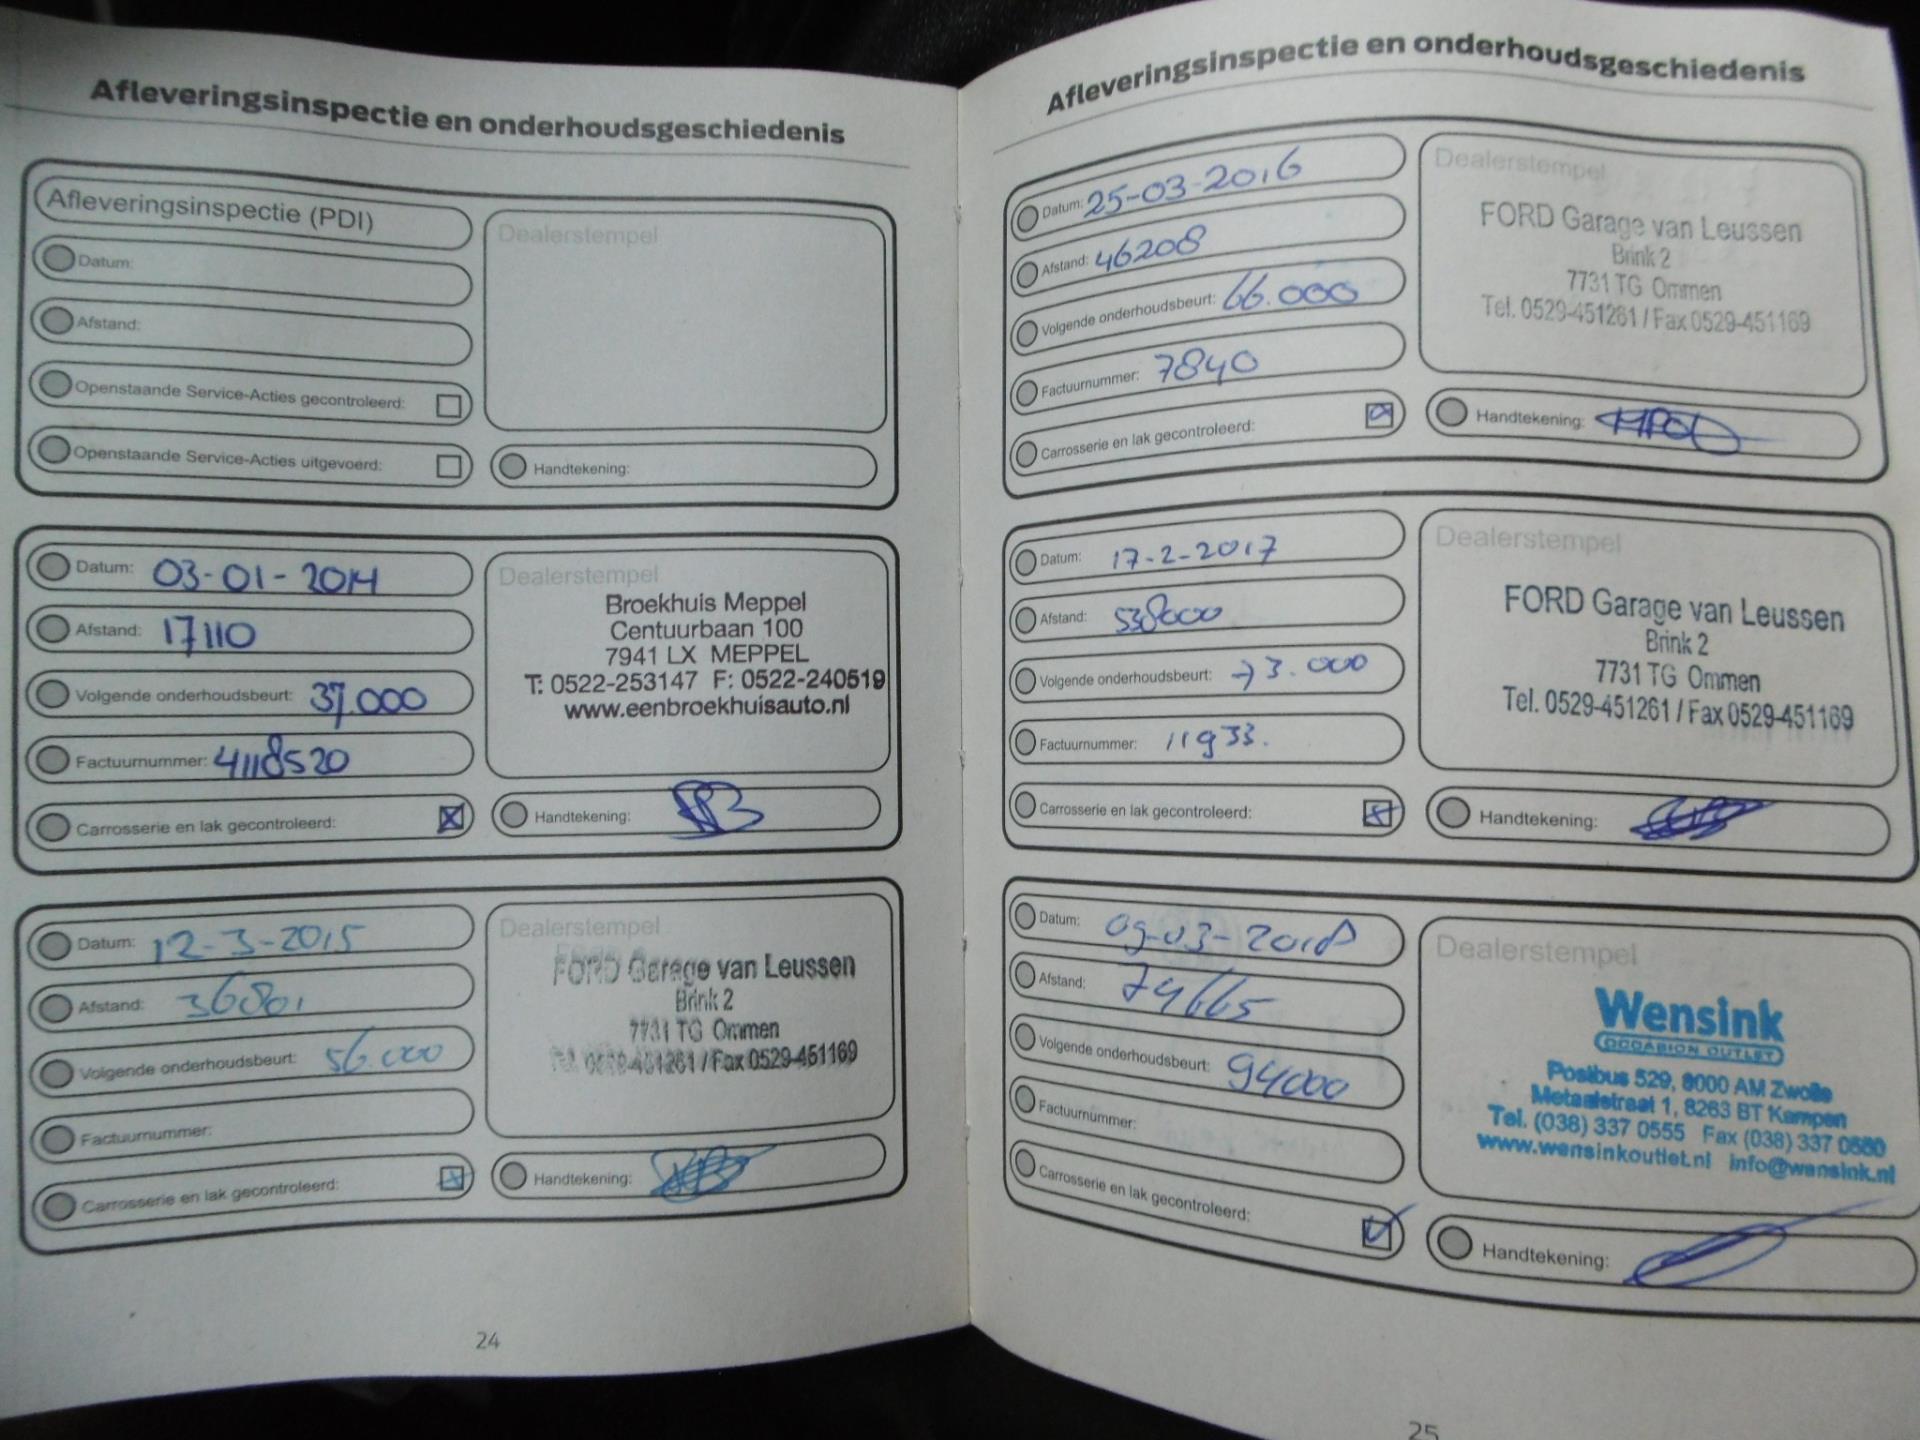 Afleveringsinspectie en onderhoudsgeschiedenis
Afleveringsinspectie (PDI)
Datum:
Afstand:
Openstaande Service-Acties gecontroleerd:
Openstaande Service-Acties uitgevoerd:
Dealerstempel
Handtekening:
Datum: 03-01-2014
Afstand: 17110
Volgende onderhoudsbeurt: 37.000
Factuurnummer: 4118520
Carrosserie en lak gecontroleerd:
Dealerstempel
Broekhuis Meppel
Centuurbaan 100
7941 LX MEPPEL
T: 0522-253147 F: 0522-240519
www.eenbroekhuisauto.nl
Handtekening:
Datum: 12-3-2015
Afstand: 36801
Volgende onderhoudsbeurt: 56.000
Factuurnummer:
Carrosserie en lak gecontroleerd:
Dealerstempel
FORD Garage van Leussen
Brink 2
7731 TG Ommen
Tel. 0529-451261 / Fax 0529-451169
Handtekening:
24
Afleveringsinspectie en onderhoudsgeschiedenis
Datum: 25-03-2016
Afstand: 46208
Volgende onderhoudsbeurt: 66.000
Factuurnummer: 7840
Carrosserie en lak gecontroleerd:
Dealerstempel
FORD Garage van Leussen
Brink 2
7731 TG Ommen
Tel. 0529-451261 / Fax 0529-451169
Handtekening:
Datum: 17-2-2017
Afstand:
Volgende onderhoudsbeurt: 73.000
Factuurnummer: 11933.
Carrosserie en lak gecontroleerd:
Dealerstempel
FORD Garage van Leussen
Brink 2
7731 TG Ommen
Tel. 0529-451261 / Fax 0529-451169
Handtekening:
Datum: 09-03-2018
Afstand: 74665
Volgende onderhoudsbeurt: 94000
Factuurnummer:
Carrosserie en lak gecontroleerd:
Dealerstempel
Wensink
OCCASION OUTLET
Postbus 529, 8000 AM Zwolle
Metaalstraat 1, 8263 BT Kampen
Tel. (038) 337 0555 Fax (038) 337 0580
www.wensinkoutlet.nl info@wensink.nl
Handtekening:
25